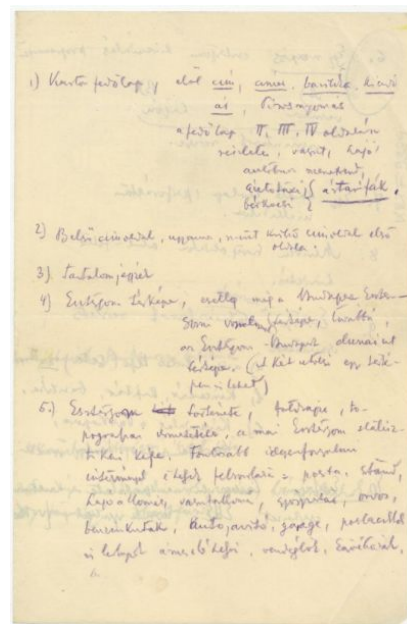 1) Karton fedőlap, elöl cím, címer, bazilika, kiadó
ár, Társnyomás
a fedőlap II, III, IV oldalán
részletes, vasút, hajó
autóbusz menetrend,
autótaxi } ártarifák.
bérkocsi }
2) Belső címoldal, ugyanaz, mint külső címoldal első
oldala.
3). Tartalomjegyzék
4) Esztergom térképe, esetleg még a Budapest Eszter-
gom térképe, továbbá,
az Esztergom - Budapest dunai út
térképe. (A két utolsó egy tér-
képen is lehet)
5.) Esztergom története, földrajzi, to-
pografiai ismertetése, a mai Esztergom statisz-
tikai képe. Fontosabb idegenforgalmi
intézményei helyei felsorolása = posta. stáció,
hajóállomás, vasútállomás, gyógyszertár, orvos,
benzinkutak, autójavító, garage,
és helyei, vendéglők, kávéházak,